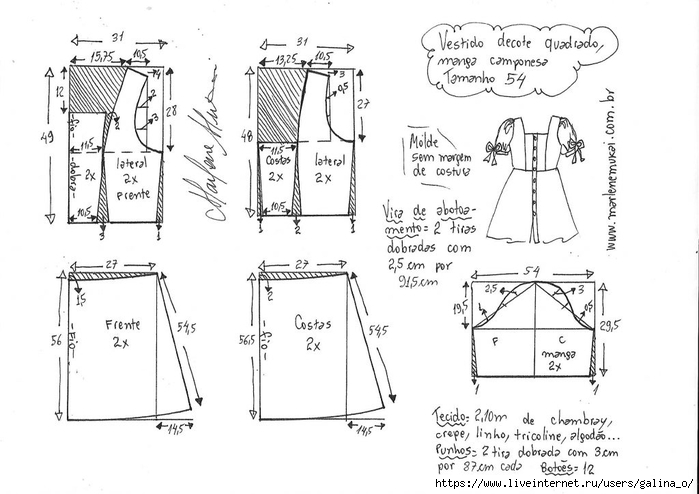 Vestido decote quadrado,
manga camponesa
Tamanho 54
31
15,75
10,5
12
49
4
2
3
2
28
Fio
dobra
11,5
2x
lateral
2x
Frente
10,5
3
1
31
13,25
10,5
3
0,5
27
48
11,5
Costas
2x
lateral
2x
10,5
1
2
1
Molde
sem margem
de costura
Vira de abotoa-
mento = 2 tiras
dobradas com
2,5 cm por
91,5 cm
www.marlenemukai.com.br
27
1,5
Fio
Frente
2x
56
54,5
14,5
27
2
Fio
Costas
2x
56,5
54,5
14,5
54
2,5
3
1
0,5
19,5
29,5
F
C
manga
2x
1
1
Tecido = 2,10m de chambray,
crepe, linho, tricoline, algodão...
Punhos = 2 tira dobrada com 3 cm
por 87 cm cada Botões = 12
https://www.liveinternet.ru/users/galina_o/